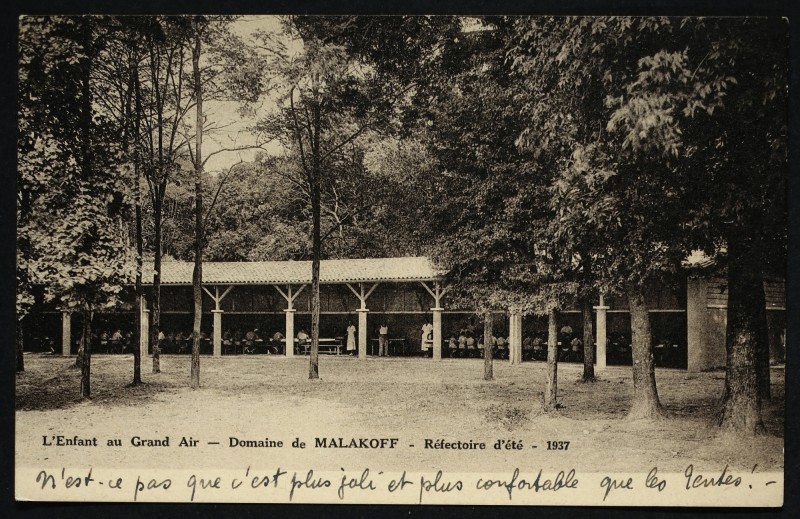 L'Enfant au Grand Air — Domaine de MALAKOFF - Réfectoire d'été - 1937
N'est-ce pas que c'est plus joli et plus confortable que les Tentes! -